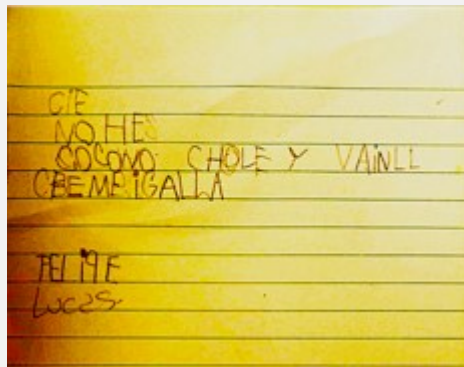 CIE
NO HES
COCONO CHOLE Y VAINLL
CBEMPIGALLA
FELIPE
Lucas